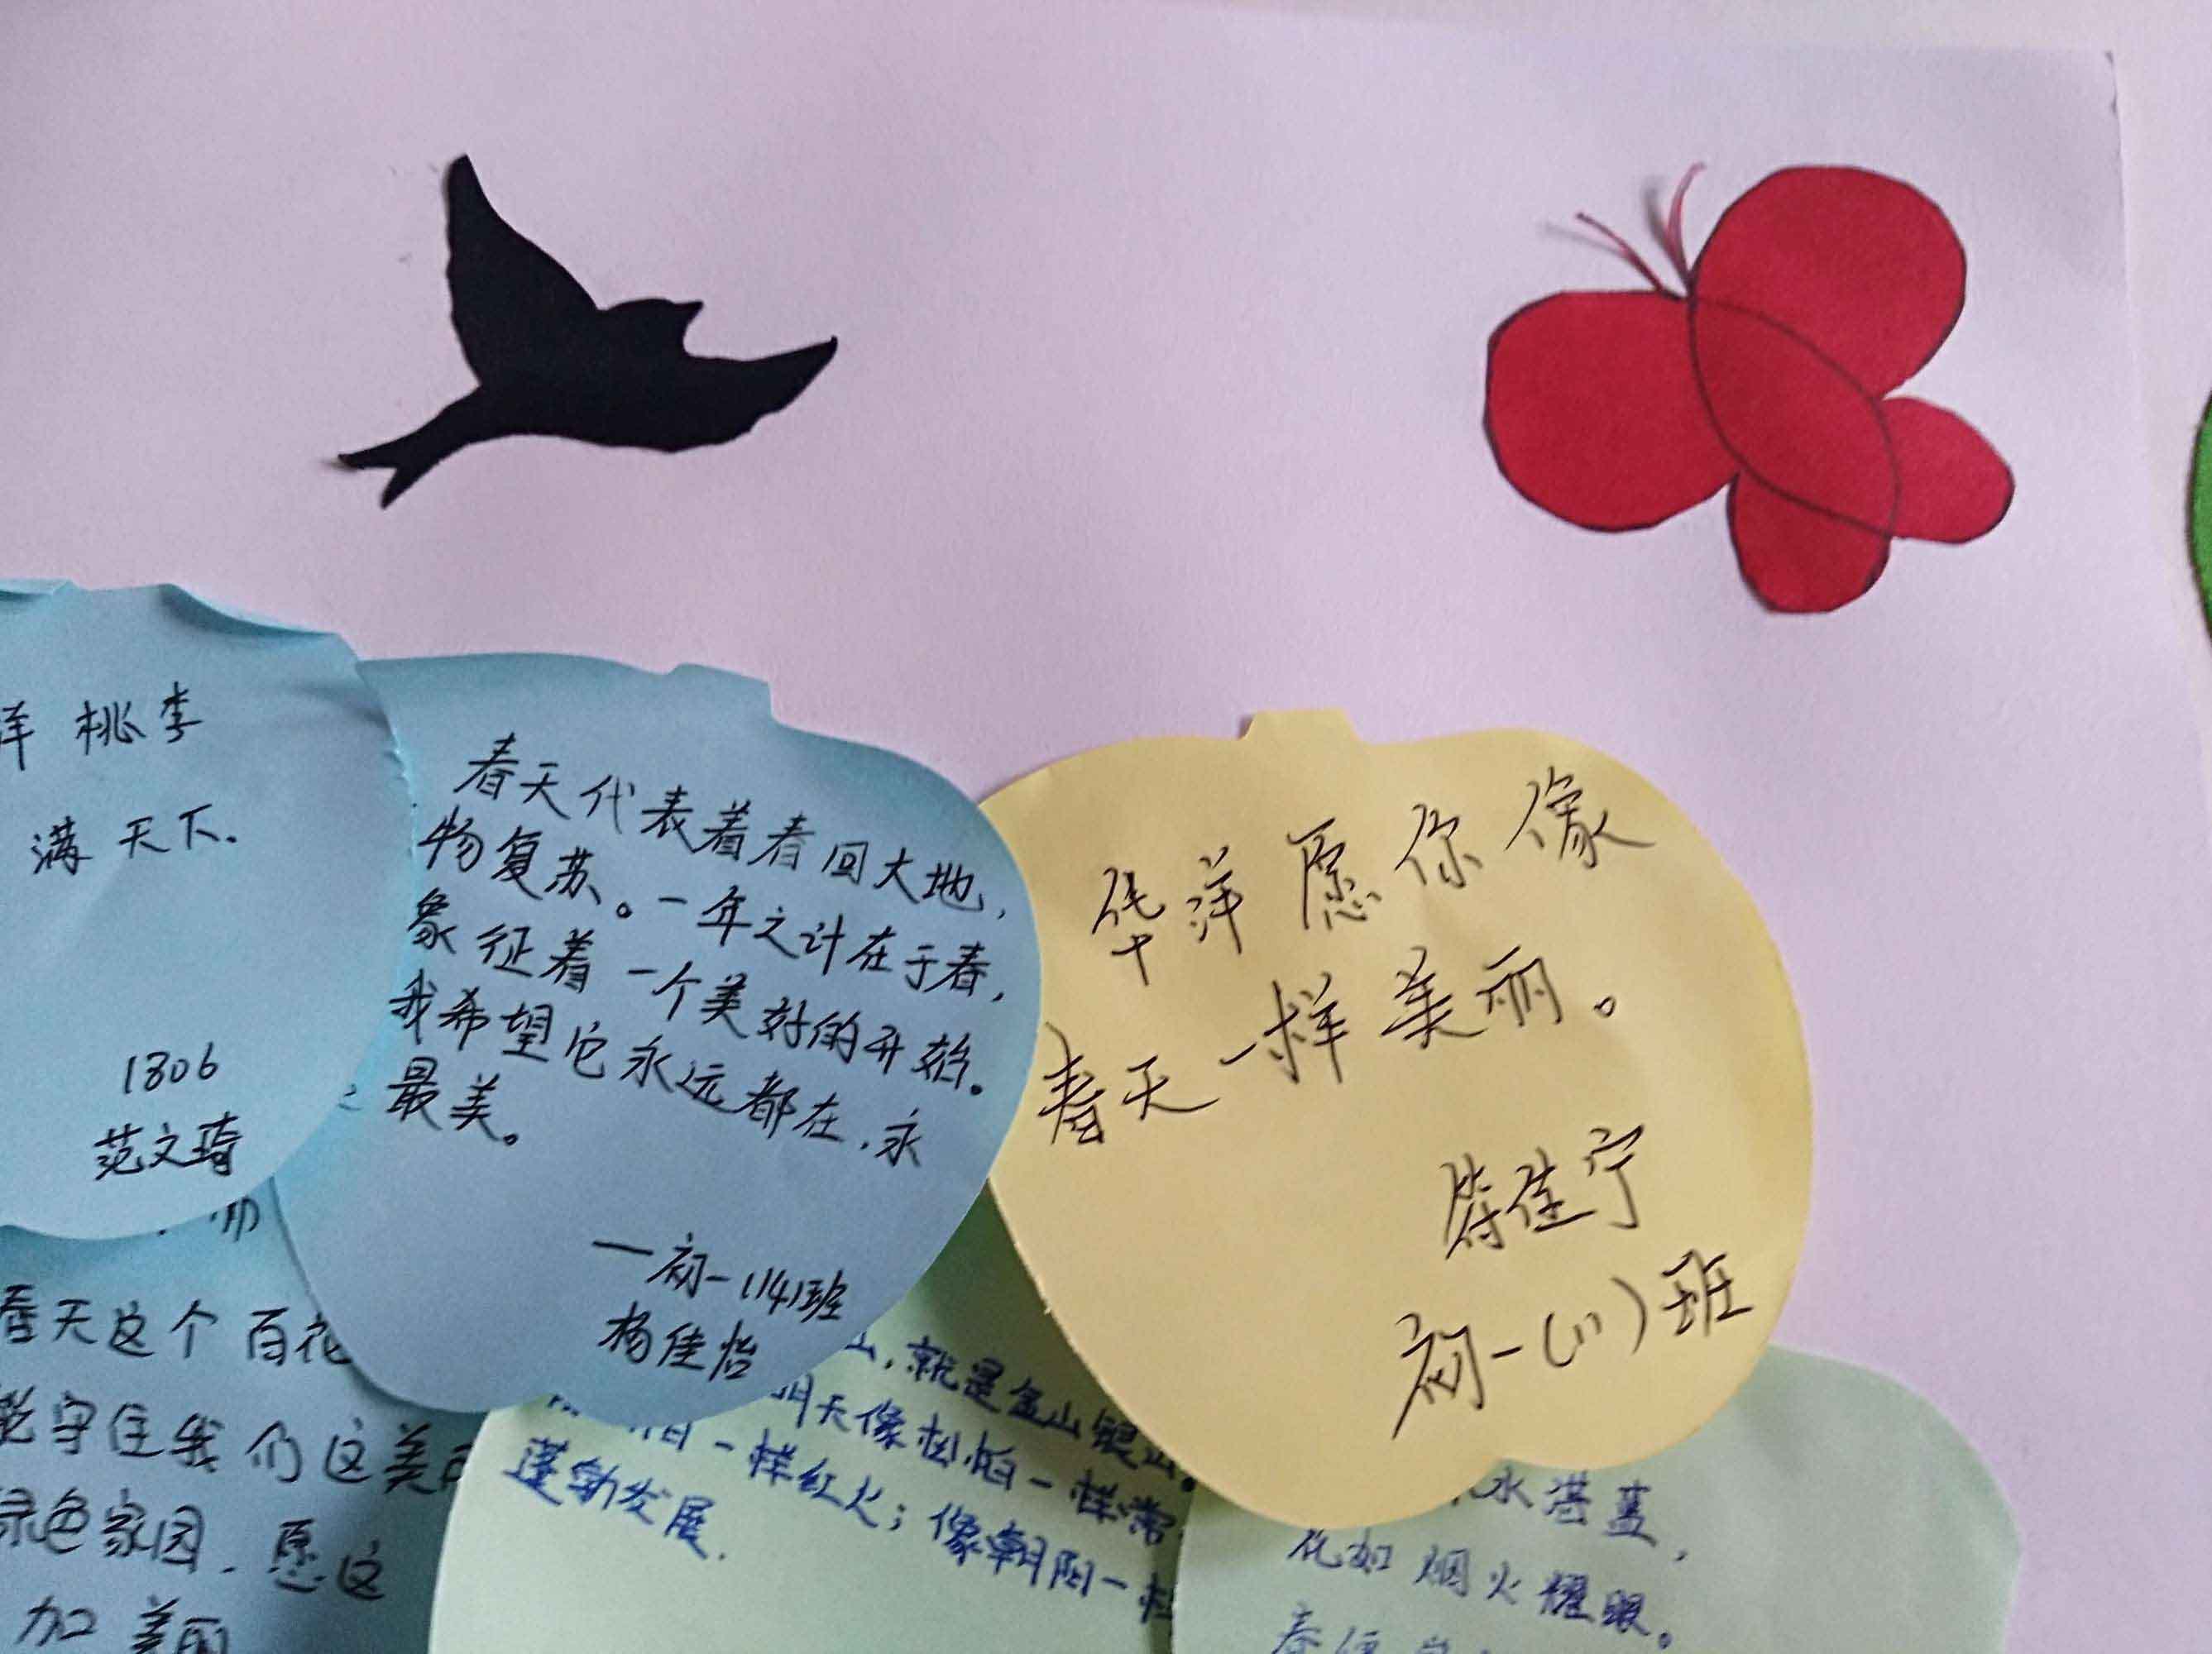 洋桃李
满天下.
1806
范文琦
春天代表着春回大地,
物复苏。一年之计在于春,
象征着一个美好的开始。
我希望它永远都在,永
最美。
一初一(14)班
杨佳怡
华洋愿你像
春天一样美丽。
符佳宁
初一(11)班
春天这个百花
能守住我们这美
绿色家园.愿这
加美丽
山,就是金山银山。
明天像松柏一样常
一样红火;像朝阳一样
蓬勃发展.
水湛蓝,
花如烟火耀眼。
春